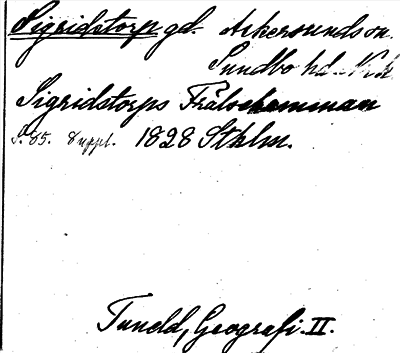 Sigridstorp gd. Askersunds sn.
Sundbo hd. Nke
Sigridstorps Frälsehemman
S. 85. Suppl. 1828 Sthlm.
Tuneld, Geografi. II.